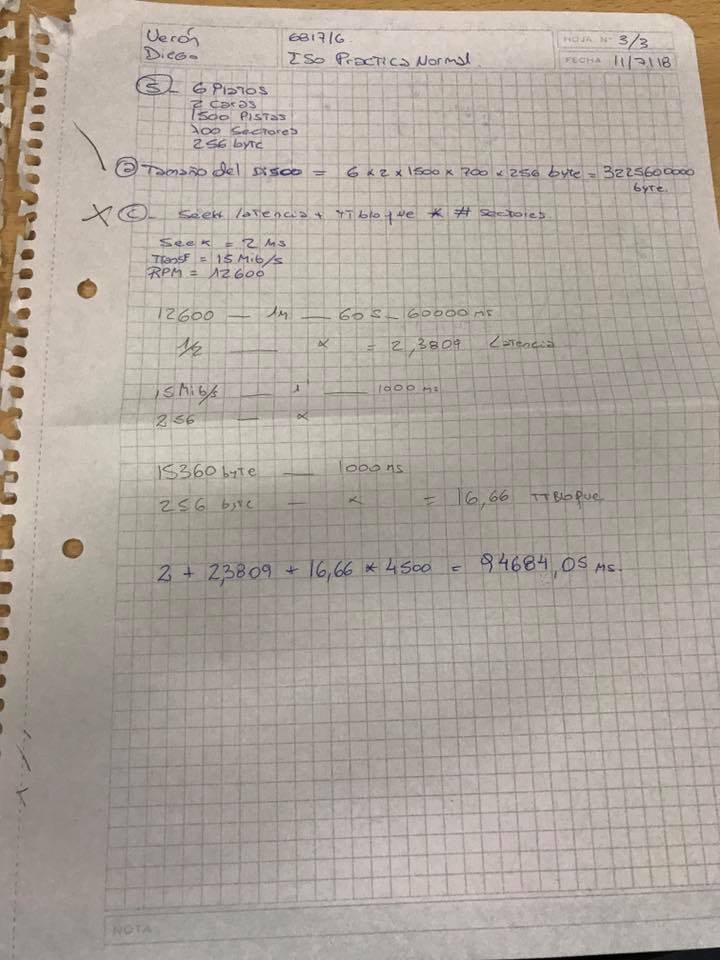 Verón 6817/6 HOJA Nº 3/3
Diego ISO Practica Normal FECHA 11/7/18
5 - 6 Platos
2 Caras
1500 Pistas
700 Sectores
256 byte
a Tamaño del disco = 6 x 2 x 1500 x 700 x 256 byte = 3225600000
byte.
X C - Seek latencia + TTbloque * # sectores
Seek = 2 ms
Transf = 15 Mib/s
RPM = 12600
12600 — 1M — 60 s - 60000 ms
1/2 — x = 2,3809 Latencia
15 Mib/s — 1' — 1000 ms
256 — x
15360 byte — 1000 ms
256 byte — x = 16,66 TTBloque
2 + 2,3809 + 16,66 * 4500 = 94684,05 ms.
NOTA